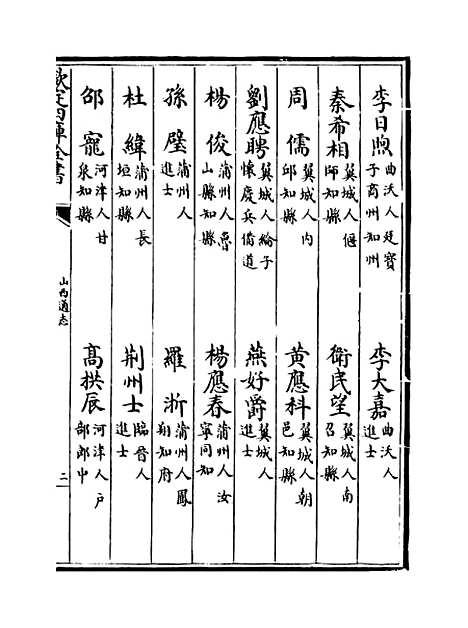 李日煦 曲沃人廷寳子商州知州 李大嘉 曲沃人進士
秦希相 翼城人偃師知縣 衛民望 翼城人南召知縣
周儒 翼城人内邱知縣 黄應科 翼城人朝邑知縣
劉應聘 翼城人綸子懐慶兵備道 燕好爵 翼城人進士
楊俊 蒲州人魯山縣知縣 楊應春 蒲州人汝寧同知
孫璧 蒲州人進士 羅浙 蒲州人鳳翔知府
杜緯 蒲州人長垣知縣 荆州士 臨晉人進士
邵寵 河津人甘泉知縣 髙拱辰 河津人户部郎中
欽定四庫全書 山西通志 二